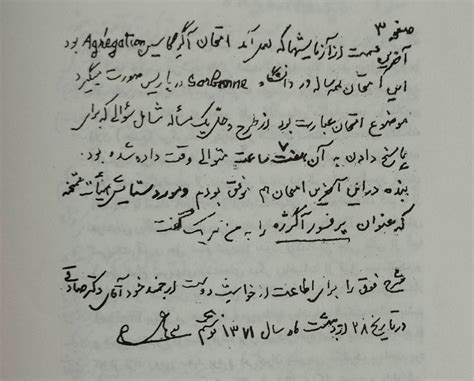 صفحه ۳
آخرین قسمت از آزمایشها که بعمل آمد امتحان آگرگاسیون Agrégation بود
این امتحان همه ساله در دانشگاه Sorbonne در پاریس صورت میگیرد
موضوع امتحان عبارت بود از طرح و حل یک مسأله شامل سؤالی که برای
پاسخ دادن به آن هفت ۷ ساعت متوالی وقت داده شده بود.
بنده در این آخرین امتحان هم موفق بودم و مورد ستایش هیأت ممتحنه
که عنوان پرفسور آگرژه را به من تبریک گفت
شرح فوق را برای اطاعت از خواست دوست ارجمند خود آقای دکتر صادقی
در تاریخ ۲۸ اردیبهشت ماه سال ۱۳۷۱ نوشتم